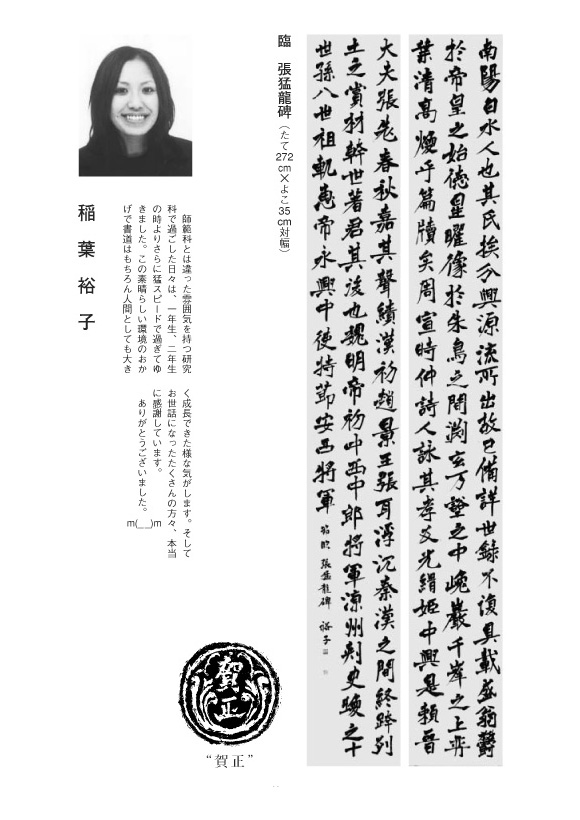 南陽白水人也其氏族分興源流所出故已備詳世錄不復具載
於帝皇之始德星曜像於朱鳥之間淵玄万壑之中巉巖千峯之上
葉清高煥乎篇牘矣周宣時仲詩人詠其孝友光緝姬中興是賴晋
大夫張老春秋嘉其聲績漢初趙景王張耳浮沉秦漢之間終跨列
土之賞材幹世著君其後也魏明帝初中西中郎將軍涼州刺史瓊之十
世孫八世祖軌惠帝永興中使持節安西將軍
張猛龍碑 裕子
臨　張猛龍碑（たて272cm×よこ35cm対幅）
師範科とは違った雰囲気を持つ研究
科で過ごした日々は、一年生、二年生
の時よりさらに猛スピードで過ぎてゆ
きました。この素晴らしい環境のおか
げで書道はもちろん人間としても大き
く成長できた様な気がします。そして
お世話になったたくさんの方々、本当
に感謝しています。
ありがとうございました。
m(__)m
稲葉裕子
賀正
“賀正”